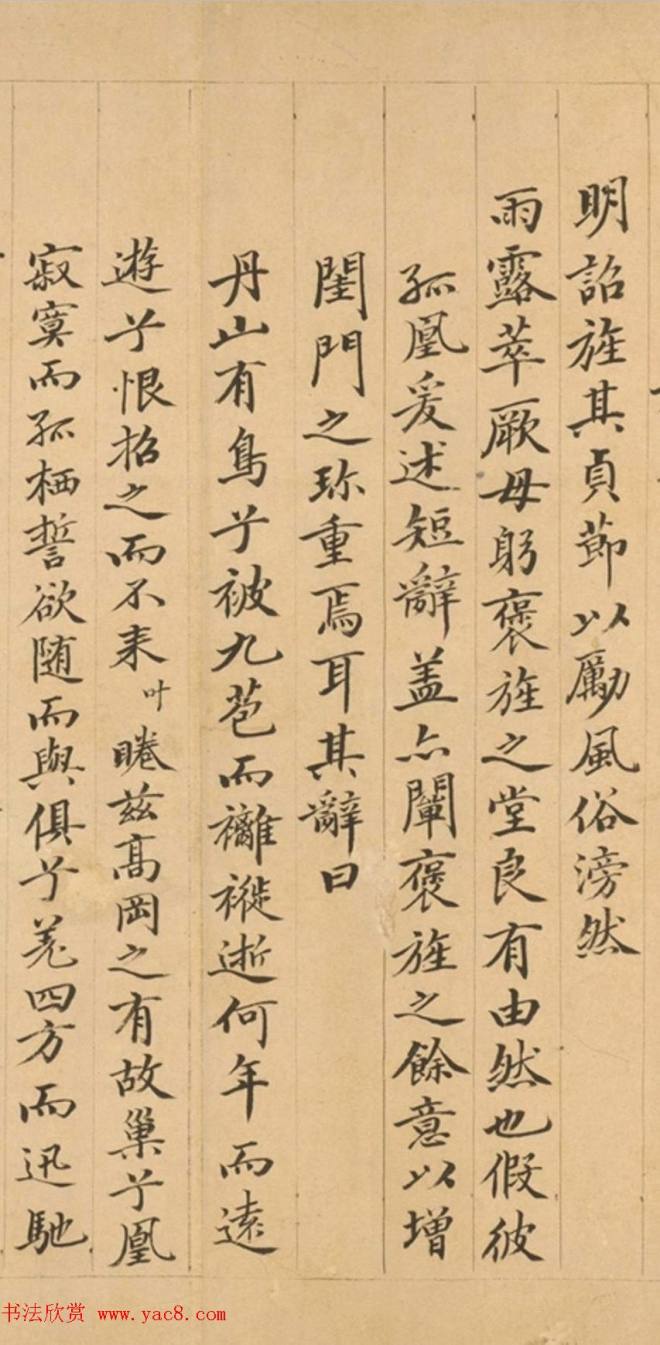 明詔旌其貞節以勵風俗滂然
雨露萃厥母躬褒旌之堂良有由然也假彼
孤凰爰述短辭盖亦闡褒旌之餘意以增
閨門之珎重焉耳其辭曰
丹山有鳥兮被九苞而襹褷逝何年而遠
遊兮恨招之而不来叶睠茲高岡之有故巢兮凰
寂寞而孤栖誓欲随而與俱兮羌四方而迅馳
书法欣赏 www.yac8.com